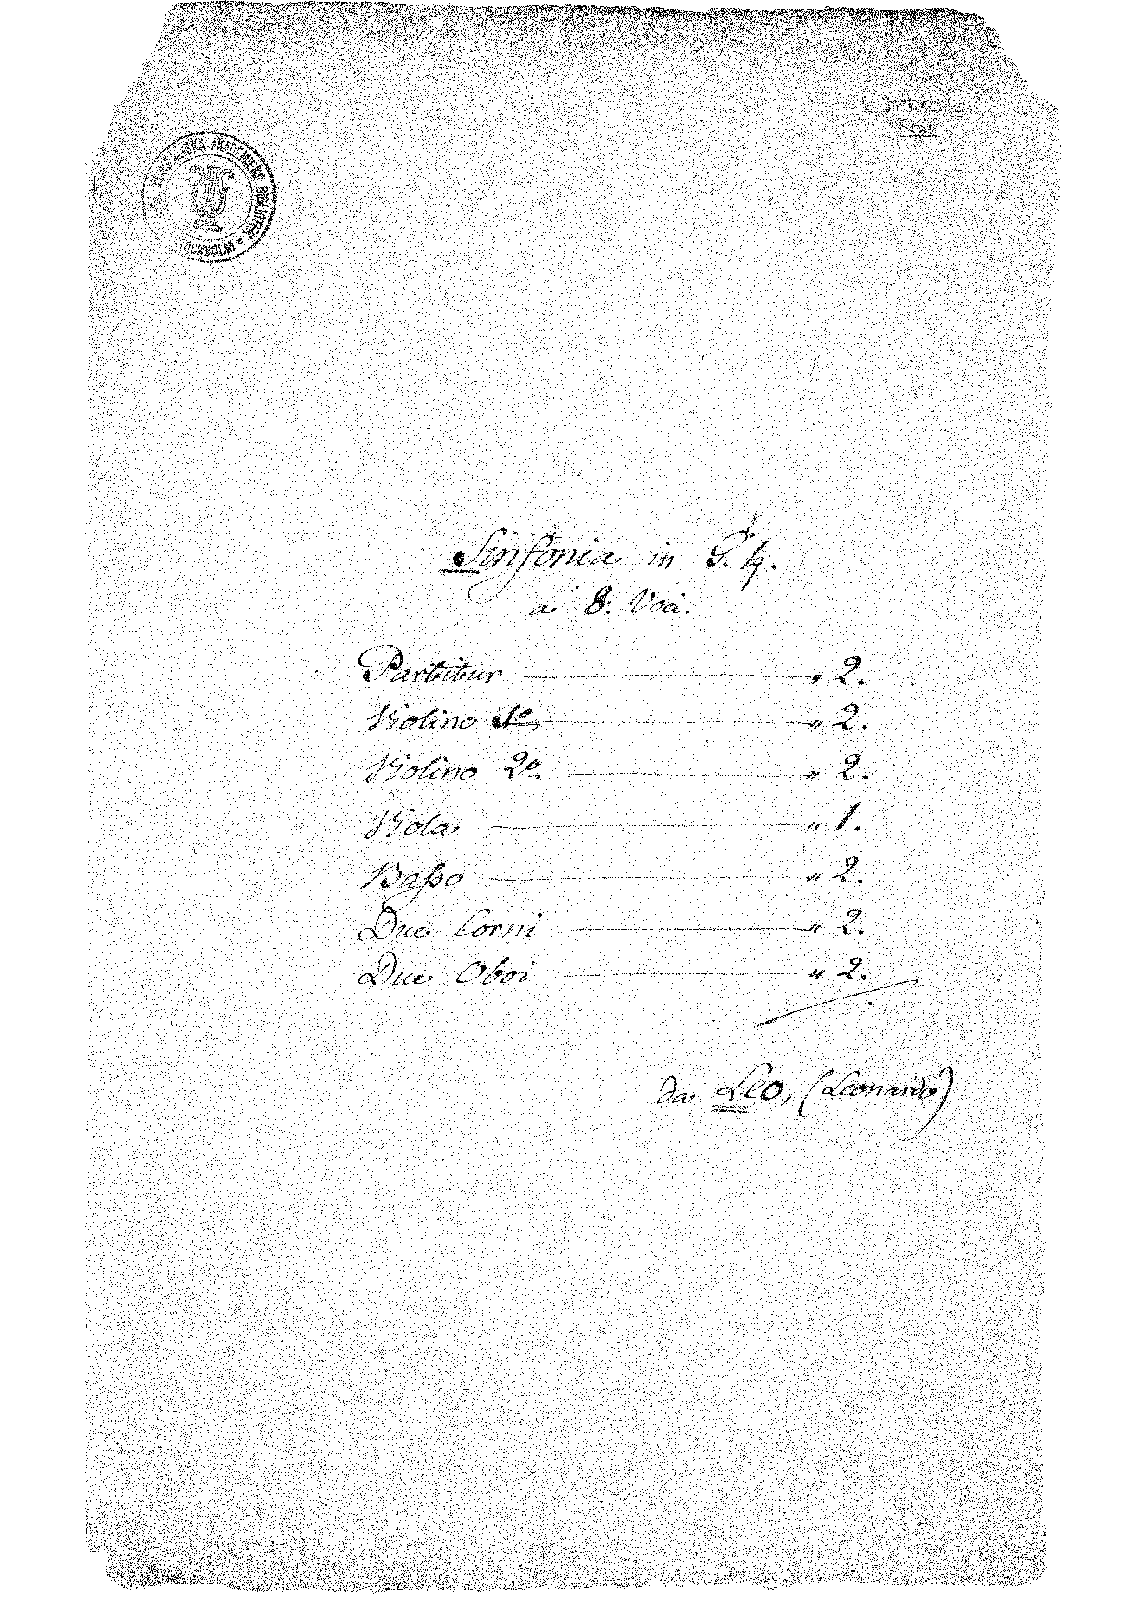 Sinfonia in G. ♮.
a 8: Voci.
Partitur — " 2.
Violino 1o. — " 2.
Violino 2o. — " 2.
Viola — " 1.
Baßo — " 2.
Due Corni — " 2.
Due Oboi — " 2.
da Leo, (Leonardo)